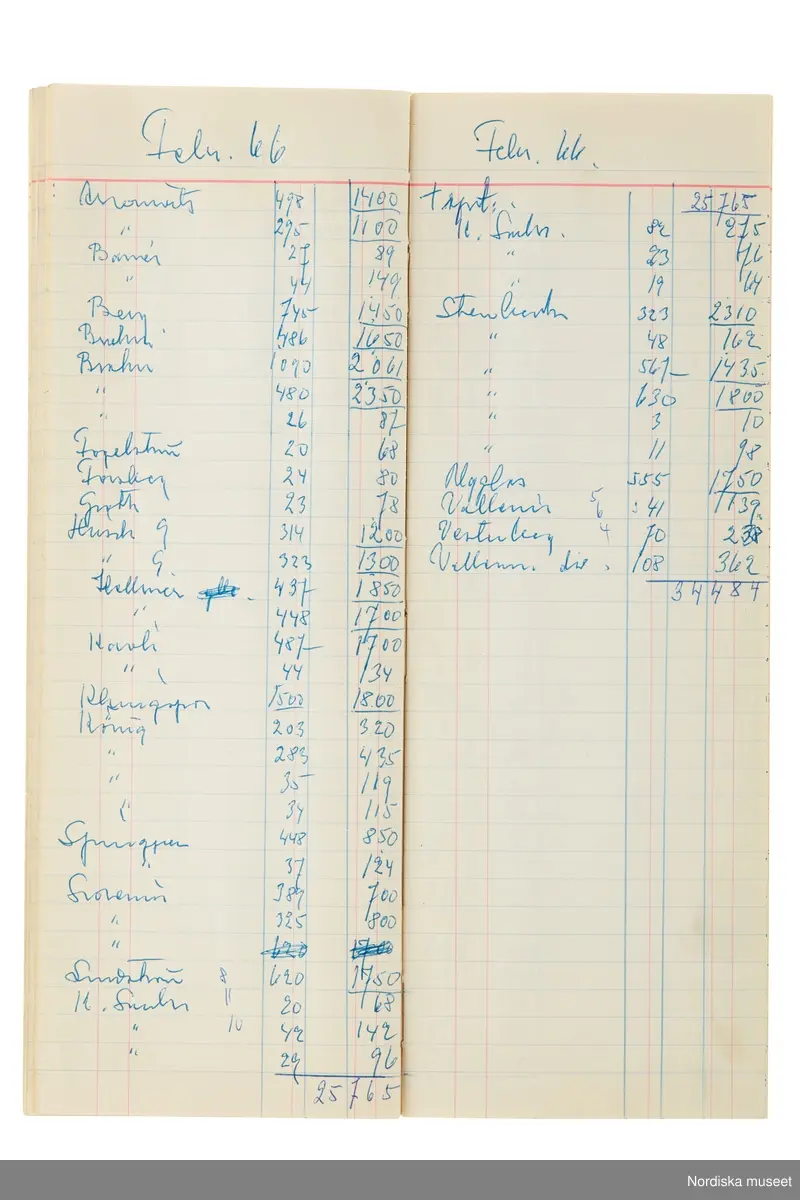 Febr. 66
498 1400
" 295 1100
Barnér 27 89
" 44 149
Berg 745 1450
486 1650
Brahn 1090 2061
" 480 2350
" 26 87
Fogelström 20 68
Forsberg 24 80
Groth 23 78
Hirsch G 314 1200
" G 323 1300
Hallmér 437 1850
" 448 1700
Karoli 487 1700
" 44 134
Klingspor 1500 1800
König 203 320
" 283 435
" 35 119
" 34 115
448 850
" 37 124
389 700
" 325 800
" 620 1700
Lindström 8 620 1750
K. 11 20 68
" 10 42 142
" 29 96
25 765
Febr. 66.
25 765
K. 82 275
" 23 76
" 19 64
Stenbeck 323 2310
" 48 162
" 567 1435
" 630 1800
" 3 10
" 11 98
555 1750
5/6 :41 1139
Vesterberg 4 70 238
108 362
34 484
Nordiska museet